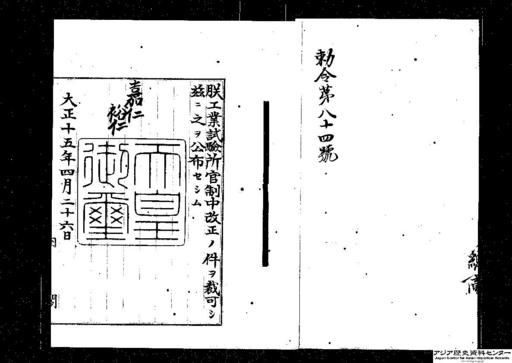 勅令第八十四號
朕工業試驗所官制中改正ノ件ヲ裁可シ
玆ニ之ヲ公布セシム
嘉仁
裕仁
天皇
御璽
大正十五年四月二十六日
内閣
アジア歴史資料センター
Japan Center for Asian Historical Records